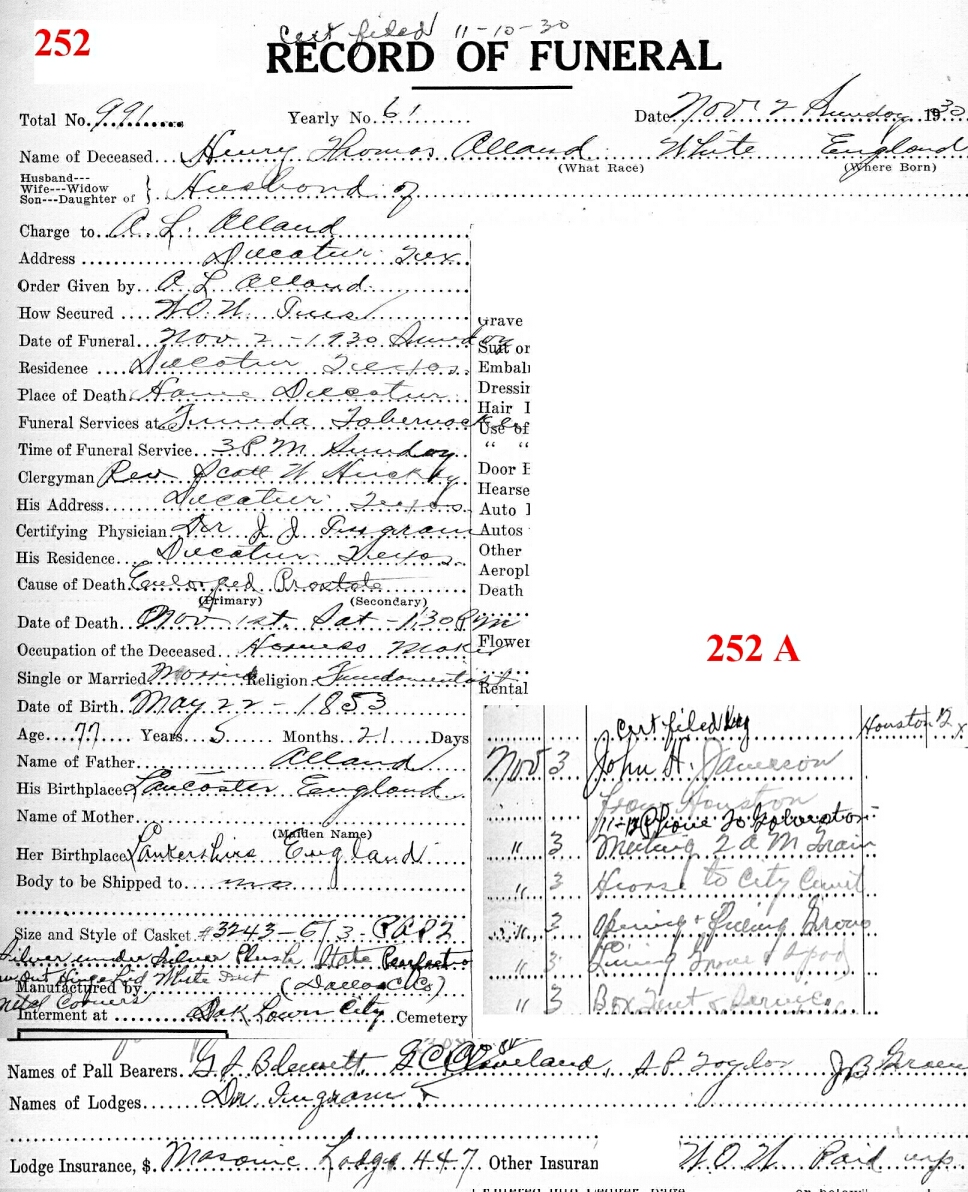 252
Cert filed 11-10-30
RECORD OF FUNERAL
Total No. 991 Yearly No. 61 Date Nov 2 Sunday 1930
Name of Deceased Henry Thomas Alland White England
(What Race) (Where Born)
Husband---
Wife---Widow
Son---Daughter of } Husband of
Charge to A. L. Alland
Address Decatur Tex
Order Given by A L Alland
How Secured W.O.W. Ins
Date of Funeral Nov. 2 - 1930 Sunday
Residence Decatur Texas
Place of Death Home Decatur
Funeral Services at Funda Tabernacle
Time of Funeral Service 3 P.M Sunday
Clergyman Rev Scott W Hickey
His Address Decatur Texas
Certifying Physician Dr J. J. Ingram
His Residence Decatur Texas
Cause of Death Enlorged Prostate
(Primary) (Secondary)
Date of Death Nov 1st. Sat - 1:30 P.m
Occupation of the Deceased Harness Maker
Single or Married Married Religion Fundamentalist
Date of Birth May 22 - 1853
Age 77 Years 5 Months 21 Days
Name of Father Alland
His Birthplace Lancaster England
Name of Mother
(Maiden Name)
Her Birthplace Lankershire England
Body to be Shipped to no
Size and Style of Casket #3243 - 6/3
Silver under Silver Plush State
White
Manufactured by (Dallas C Co)
Metal Corners
Interment at Oak Lawn City Cemetery
Grave
Suit or
Embal
Dressin
Hair
Use of
“ “
Door
Hearse
Auto
Autos
Other
Aeropl
Death
Flower
Rental
252 A
Cert filed by Houston
Nov 3 John H. Jamerson
from Houston
Phone To Galveston
" 3 Meeting 2 A M Train
" 3 Hearse to City Cemt
3 Opening & Filling Grave
" 3 Lining Grave &
" 3 Box Tent & Service
Names of Pall Bearers G. C. Cleveland, S P Taylor J B Green
Names of Lodges Dr. Ingram
Lodge Insurance, $. Masonic Lodge 447 Other Insuran W.O.W. Paid up